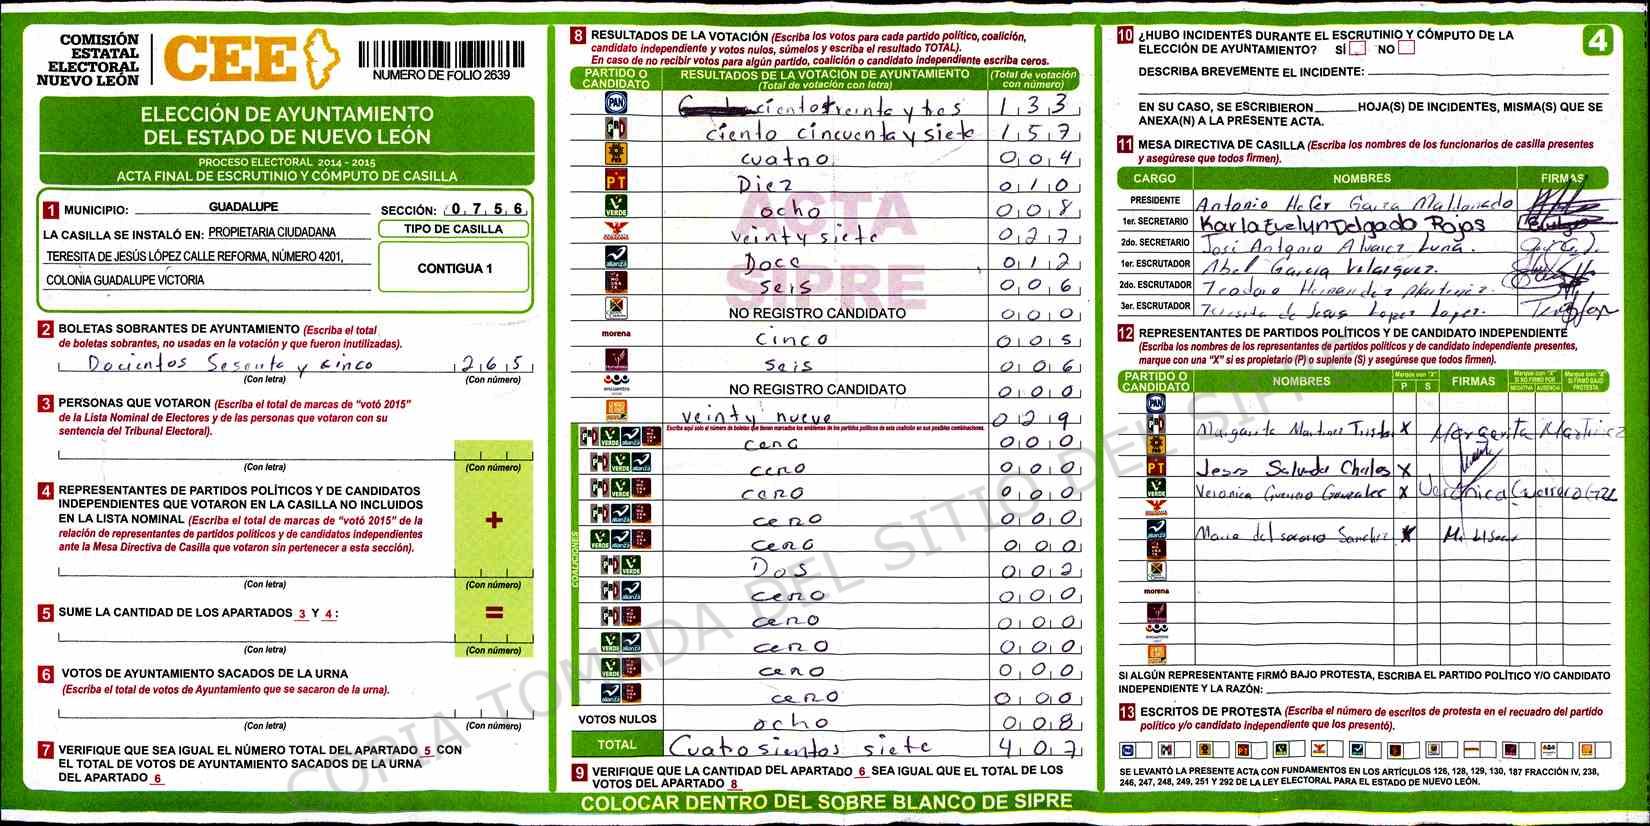 COMISIÓN
ESTATAL
ELECTORAL
NUEVO LEÓN
CEE
NUMERO DE FOLIO 2639
ELECCIÓN DE AYUNTAMIENTO
DEL ESTADO DE NUEVO LEÓN
PROCESO ELECTORAL 2014 - 2015
ACTA FINAL DE ESCRUTINIO Y CÓMPUTO DE CASILLA
1 MUNICIPIO: GUADALUPE SECCIÓN: 0,7,5,6
LA CASILLA SE INSTALÓ EN: PROPIETARIA CIUDADANA
TERESITA DE JESÚS LÓPEZ CALLE REFORMA, NÚMERO 4201,
COLONIA GUADALUPE VICTORIA
TIPO DE CASILLA
CONTIGUA 1
2 BOLETAS SOBRANTES DE AYUNTAMIENTO (Escriba el total
de boletas sobrantes, no usadas en la votación y que fueron inutilizadas).
Docientos Sesenta y cinco 2 6 5
(Con letra) (Con número)
3 PERSONAS QUE VOTARON (Escriba el total de marcas de "votó 2015"
de la Lista Nominal de Electores y de las personas que votaron con su
sentencia del Tribunal Electoral).
(Con letra) (Con número)
4 REPRESENTANTES DE PARTIDOS POLÍTICOS Y DE CANDIDATOS
INDEPENDIENTES QUE VOTARON EN LA CASILLA NO INCLUIDOS
EN LA LISTA NOMINAL (Escriba el total de marcas de "votó 2015" de la
relación de representantes de partidos políticos y de candidatos independientes
ante la Mesa Directiva de Casilla que votaron sin pertenecer a esta sección).
+
(Con letra) (Con número)
5 SUME LA CANTIDAD DE LOS APARTADOS 3 Y 4 :
=
(Con letra) (Con número)
6 VOTOS DE AYUNTAMIENTO SACADOS DE LA URNA
(Escriba el total de votos de Ayuntamiento que se sacaron de la urna).
(Con letra) (Con número)
7 VERIFIQUE QUE SEA IGUAL EL NÚMERO TOTAL DEL APARTADO 5 CON
EL TOTAL DE VOTOS DE AYUNTAMIENTO SACADOS DE LA URNA
DEL APARTADO 6
8 RESULTADOS DE LA VOTACIÓN (Escriba los votos para cada partido político, coalición,
candidato independiente y votos nulos, súmelos y escriba el resultado TOTAL).
En caso de no recibir votos para algún partido, coalición o candidato independiente escriba ceros.
PARTIDO O CANDIDATO RESULTADOS DE LA VOTACIÓN DE AYUNTAMIENTO (Total de votación con letra) (Total de votación con número)
PAN ciento treinta y tres 1 3 3
PRI ciento cincuenta y siete 1 5 7
PRD cuatro 0 0 4
PT Diez 0 1 0
VERDE ocho 0 0 8
veinty siete 0 2 7
alianza Doce 0 1 2
seis 0 0 6
NO REGISTRO CANDIDATO 0 0 0
morena cinco 0 0 5
seis 0 0 6
NO REGISTRO CANDIDATO 0 0 0
veinty nueve 0 2 9
Escriba aquí solo el número de boletas que tienen marcados los emblemas de los partidos políticos de esta coalición en sus posibles combinaciones.
COALICIONES
cero 0 0 0
cero 0 0 0
cero 0 0 0
cero 0 0 0
cero 0 0 0
Dos 0 0 2
cero 0 0 0
cero 0 0 0
cero 0 0 0
cero 0 0 0
cero 0 0 0
VOTOS NULOS ocho 0 0 8
TOTAL Cuatrosientos siete 4 0 7
ACTA
SIPRE
9 VERIFIQUE QUE LA CANTIDAD DEL APARTADO 6 SEA IGUAL QUE EL TOTAL DE LOS
VOTOS DEL APARTADO 8
10 ¿HUBO INCIDENTES DURANTE EL ESCRUTINIO Y CÓMPUTO DE LA
ELECCIÓN DE AYUNTAMIENTO? SÍ NO
4
DESCRIBA BREVEMENTE EL INCIDENTE:
EN SU CASO, SE ESCRIBIERON HOJA(S) DE INCIDENTES, MISMA(S) QUE SE
ANEXA(N) A LA PRESENTE ACTA.
11 MESA DIRECTIVA DE CASILLA (Escriba los nombres de los funcionarios de casilla presentes
y asegúrese que todos firmen).
CARGO NOMBRES FIRMAS
PRESIDENTE Antonio Garza Maldonado
1er. SECRETARIO Karla Evelyn Delgado Rojas
2do. SECRETARIO José Antonio Alvarez Luna
1er. ESCRUTADOR Abel Garcia Velazquez.
2do. ESCRUTADOR Teodora Hernandez Martinez
3er. ESCRUTADOR Teresita de Jesus Lopez Lopez.
12 REPRESENTANTES DE PARTIDOS POLÍTICOS Y DE CANDIDATO INDEPENDIENTE
(Escriba los nombres de los representantes de partidos políticos y de candidato independiente presentes,
marque con una "X" si es propietario (P) o suplente (S) y asegúrese que todos firmen).
PARTIDO O CANDIDATO NOMBRES Marque con "X" P S FIRMAS
PAN
Margarita Martinez X Margarita Martinez
PT Jesus Salvador X
VERDE Veronica Guerrero Gonzalez X Veronica Guerrero Gzz
Maria del socorro Sanchez X
morena
SI ALGÚN REPRESENTANTE FIRMÓ BAJO PROTESTA, ESCRIBA EL PARTIDO POLÍTICO Y/O CANDIDATO
INDEPENDIENTE Y LA RAZÓN:
13 ESCRITOS DE PROTESTA (Escriba el número de escritos de protesta en el recuadro del partido
político y/o candidato independiente que los presentó).
SE LEVANTÓ LA PRESENTE ACTA CON FUNDAMENTOS EN LOS ARTÍCULOS 126, 128, 129, 130, 187 FRACCIÓN IV, 238,
246, 247, 248, 249, 251 Y 292 DE LA LEY ELECTORAL PARA EL ESTADO DE NUEVO LEÓN.
COLOCAR DENTRO DEL SOBRE BLANCO DE SIPRE
COPIA TOMADA DEL SITIO DEL SIPRE